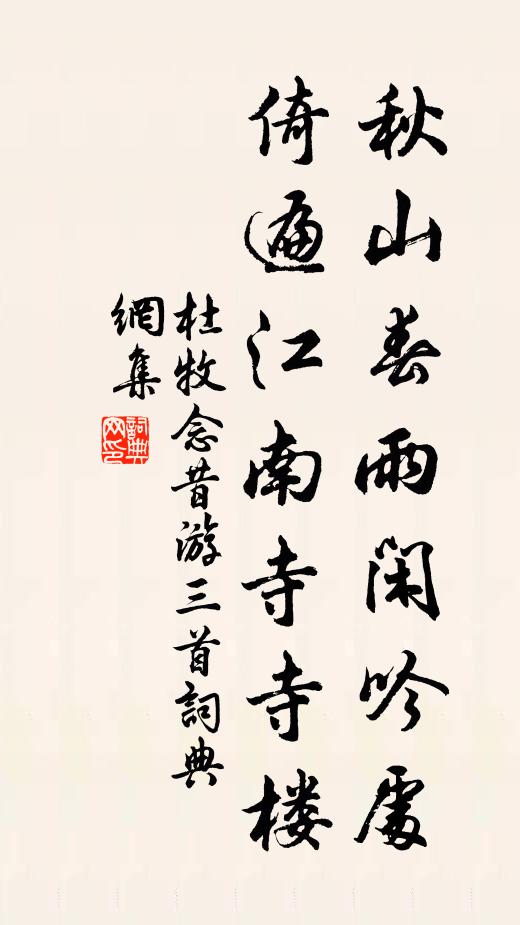 秋山春雨閑吟處
倚遍江南寺寺楼
杜牧念昔游三首詞典
網集
詞典
网印